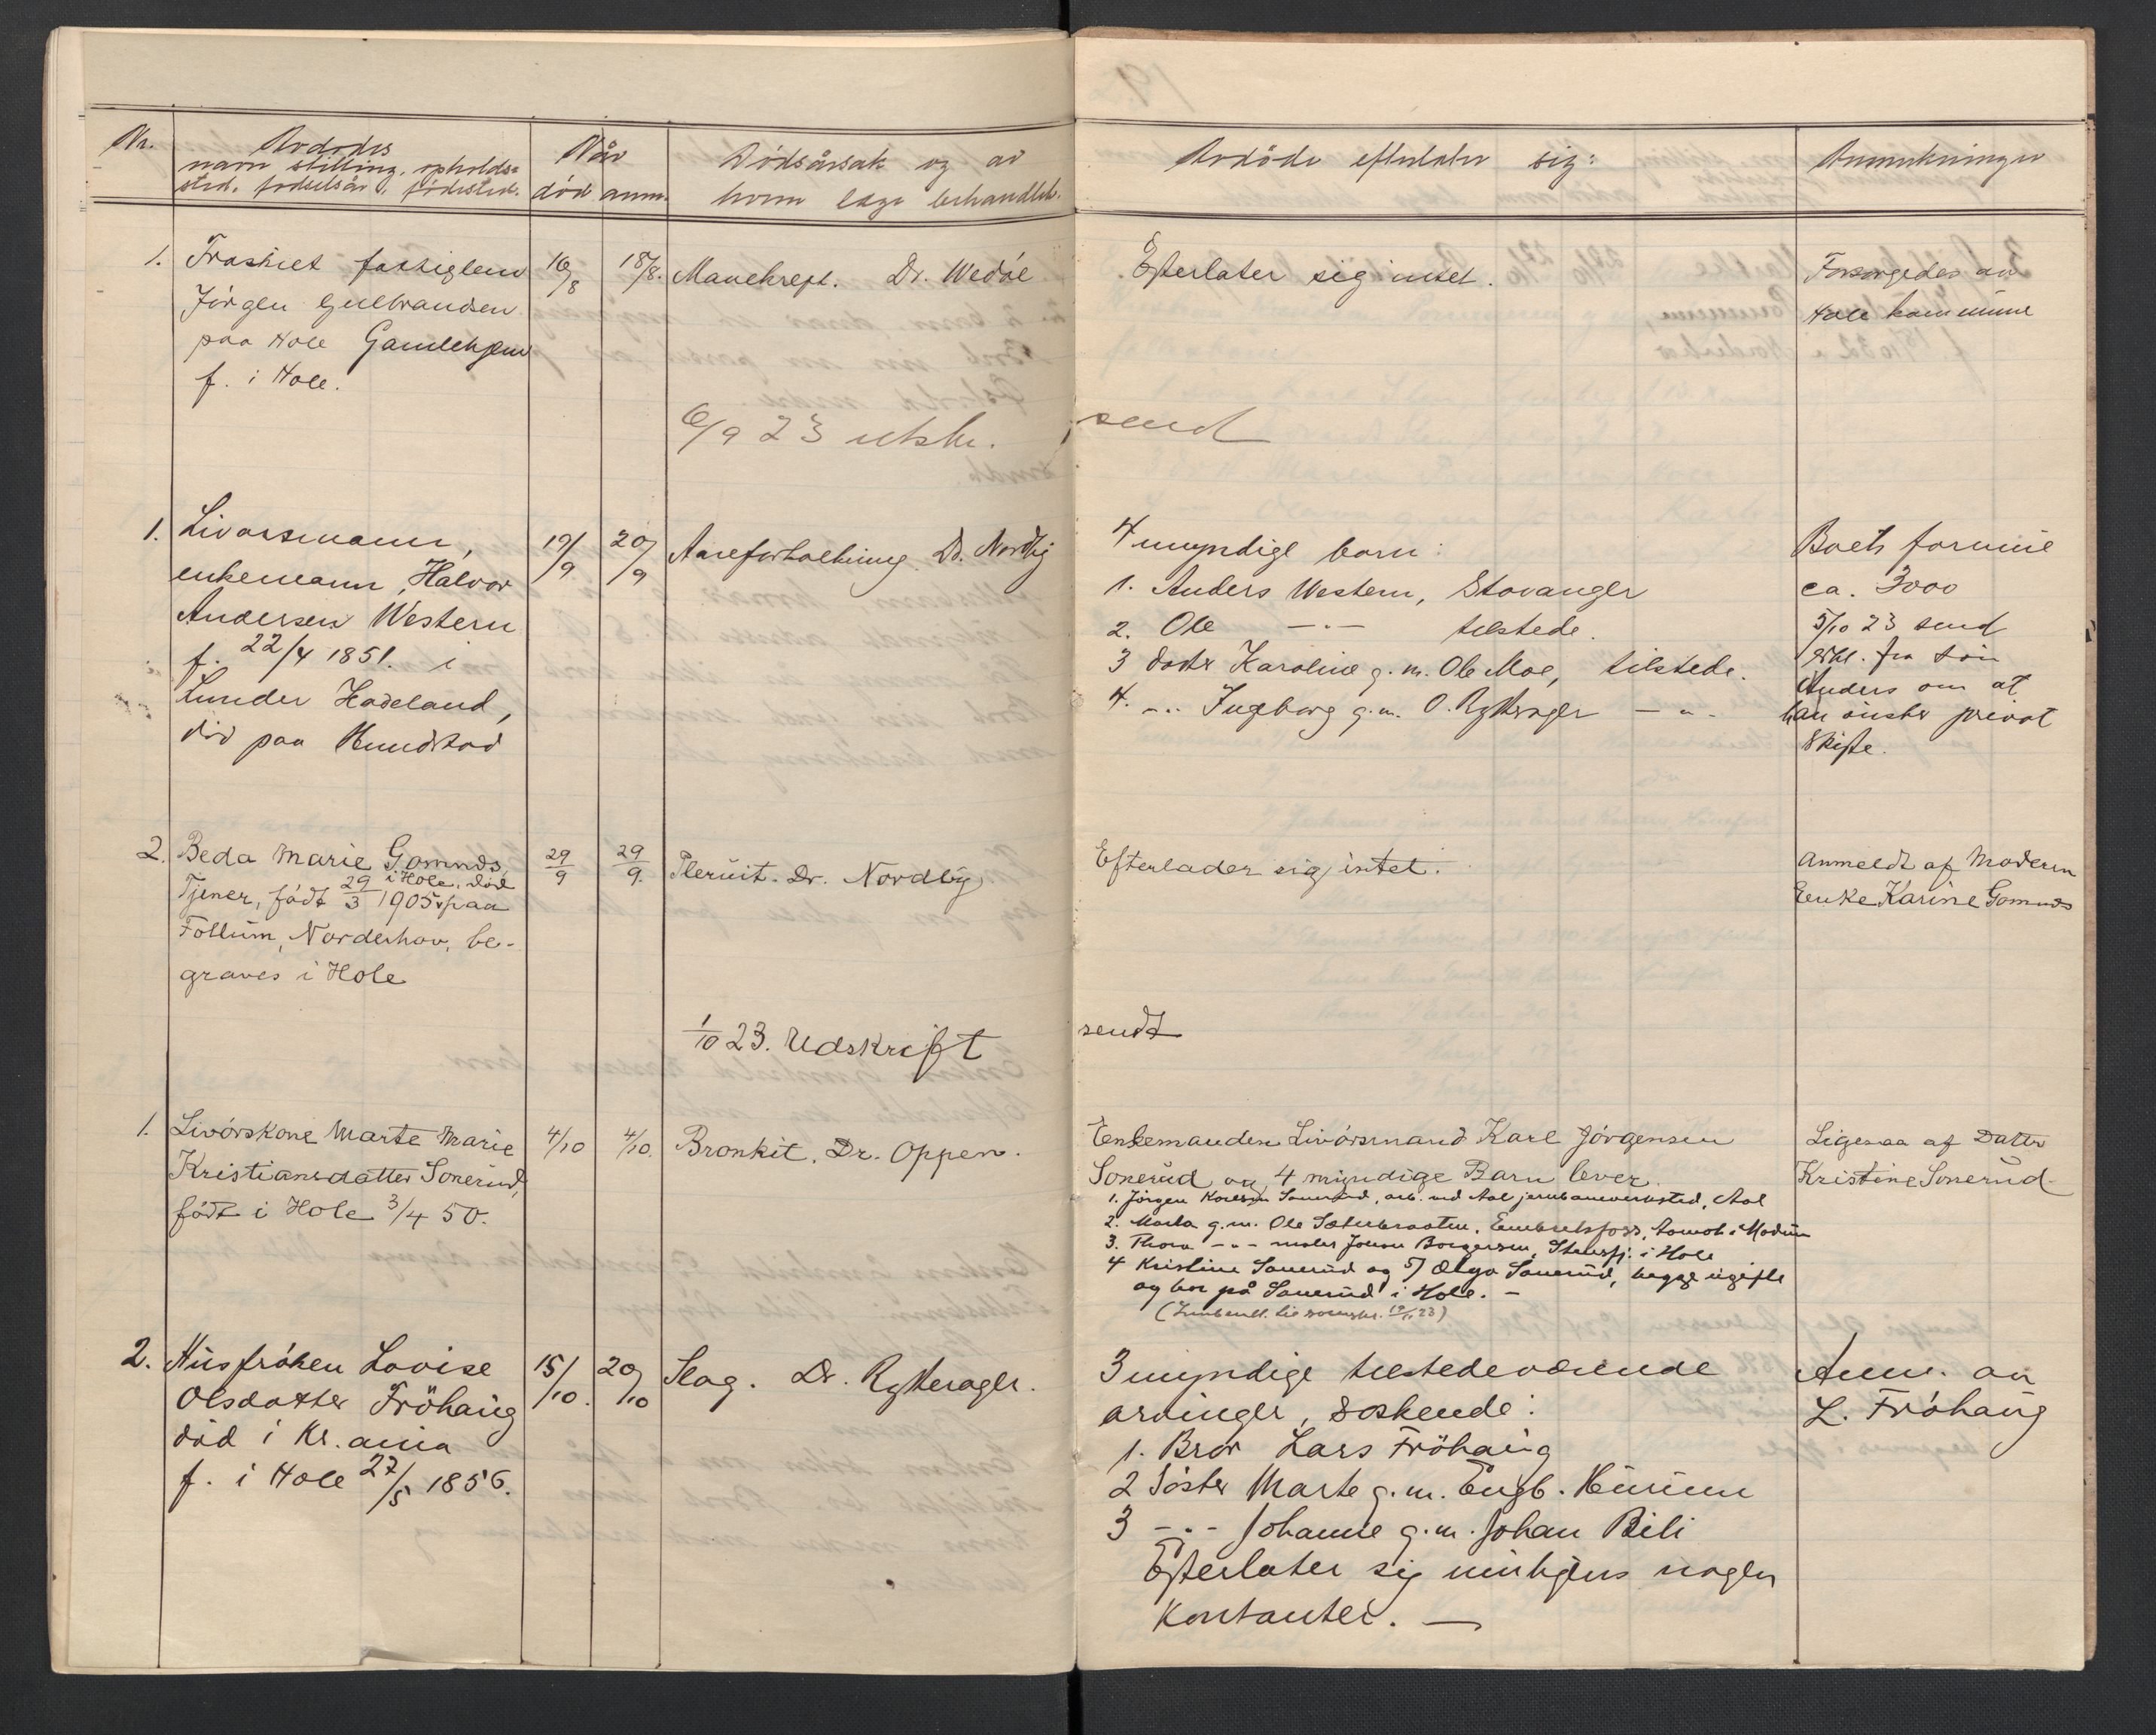 Nr.
Avdödes
navn stilling, opholds-
sted, fødselsår, fødested.
Når
död anm.
Dödsårsak og av
hvem læge behandlet.
Avdöde efterlater sig:
Anmerkninger
1. Fraskilt fattiglem 16/8 18/8. Mavekreft. Dr. Wedøe Efterlater sig intet. Forsørgedes av
Jörgen Gulbrandsen Hole kommune
paa Hole Gamlehjem
f. i Hole.
6/9 23 utskr. send
1. Livørsmann, 19/9 20/9 Aareforkalkning. Dr. Nordby 4 myndige barn: Boets formue
enkemann, Halvor 1. Anders Western, Stavanger ca. 3000
Andersen Western 2. Ole —"— tilstede. 5/10 23 send
f. 22/4 1851. i 3 datter Karoline g. m. Ole Moe, tilstede. erkl. fra sön
Lunder Hadeland, 4. —"— Ingeborg g. m. O. Rytterager —"— Anders om at
död paa Hundstad han önsker privat
skifte.
2. Beda Marie Gomnæs, 29/9 29/9. Pleurit. Dr. Nordby Efterlader sig intet. Anmeldt af Moderen
Tjener, födt 29/3 1905 i Hole, död paa Enke Karine Gomnæs
Follum, Norderhov, be-
graves i Hole
1/10 23. Udskrift sendt
1. Livörskone Marte Marie 4/10 4/10. Bronkit. Dr. Oppen. Enkemanden Livörsmand Karl Jörgensen Ligesaa af Datter
Kristiansdatter Sonerud, Sonerud og 4 myndige Barn lever. Kristine Sonerud
födt i Hole 3/4 50. 1. Jörgen Karlsen Sonerud, arb. ved Aal jernbaneverksted, Aal
2. Marta g. m. Ole Sæterbraaten, Embretsfoss, Aamot i Modum
3. Thora —"— maler Johan Borgersen, Stensfj. i Hole
4 Kristine Sonerud og 5) Olga Sonerud, begge ugifte
og bor på Sonerud i Hole. —
2. Husfröken Lovise 15/10. 20/10 Slag. Dr. Rytterager. 3 myndige tilstedeværende Anm. av
Olsdatter Fröhaug arvinger, söskende: L. Fröhaug
död i Kr.ania 1. Bror Lars Fröhaug
f. i Hole 27/5 1856. 2 Söster Marte g. m. Engb. Hurum
3 —"— Johanne g. m. Johan Bili
Efterlater sig muligens nogen
kontanter. —